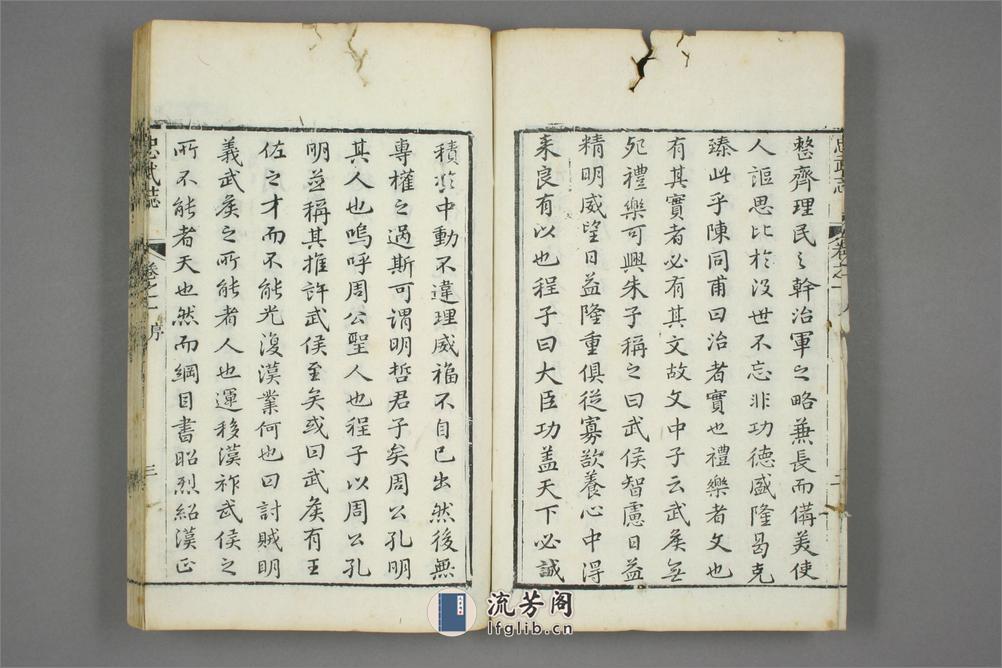 整齊理民之幹治軍之略兼長而備美使
人謳思比於沒世不忘非功德盛隆曷克
臻此乎陳同甫曰治者實也禮樂者文也
有其實者必有其文故文中子云武矦無
死禮樂可興朱子稱之曰武侯智慮日益
精明威望日益隆重俱從寡欲養心中得
来良有以也程子曰大臣功盖天下必誠
積於中動不違理威福不自已出然後無
專權之過斯可謂明哲君子矣周公孔明
其人也嗚呼周公聖人也程子以周公孔
明並稱其推許武侯至矣或曰武矦有王
佐之才而不能光復漢業何也曰討賊明
義武矦之所能者人也運移漢祚武侯之
所不能者天也然而綱目書昭烈紹漢正
忠武誌
卷之一
序
三
流芳阁
lfglib.cn